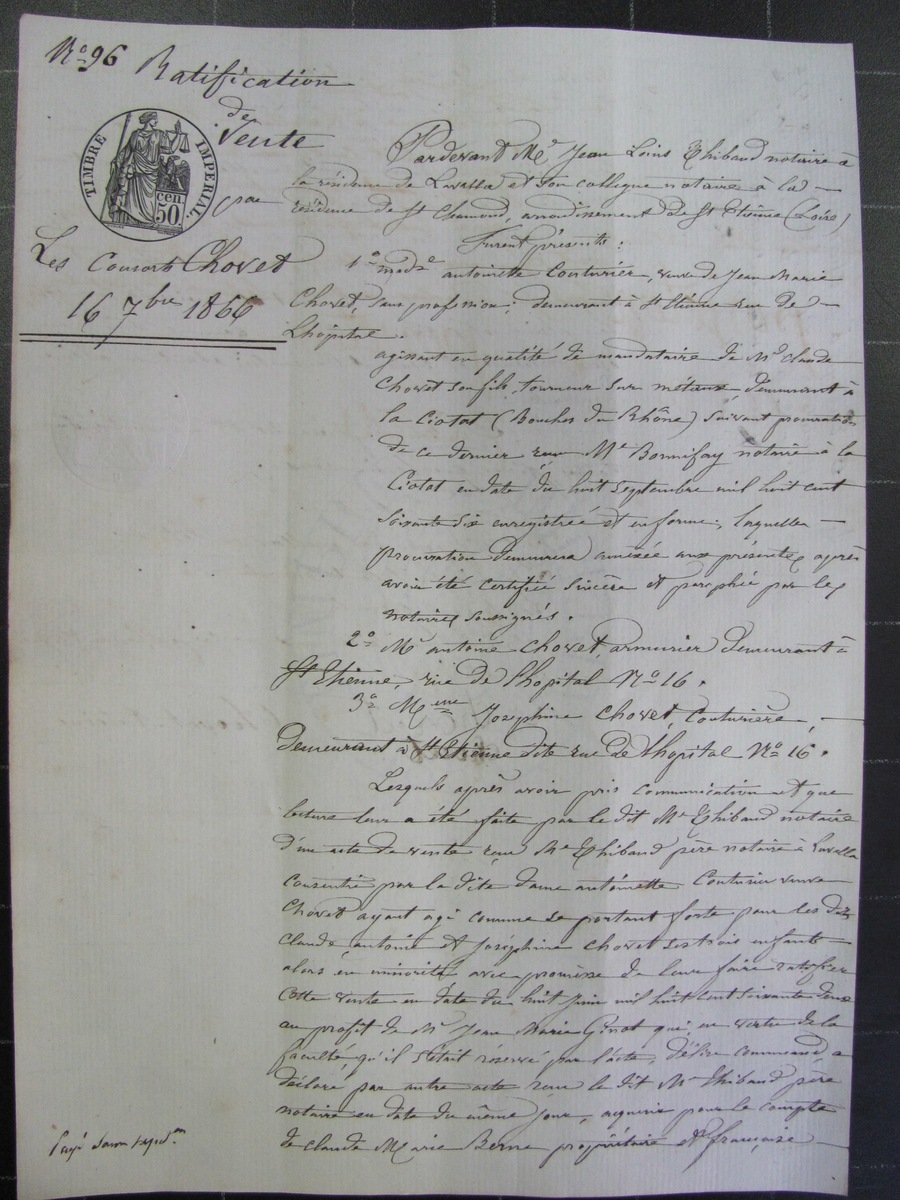 No 96 Ratification
de
Vente
TIMBRE IMPÉRIAL
50 cen
par
Les Consorts Chovet
16 7bre 1866
Pardevant Me Jean Louis Thibaud notaire à
la résidence de Lavalla et son collegue notaire à la
résidence de St Chamond, arrondissement de St Etienne (Loire)
Furent présents :
1o mad.e antoinette Couturier, veuve de Jean Marie
Chovet, sans profession, demeurant à St Etienne rue de
Lhopital.
agissant en qualité de mandataire de Mr claude
Chovet son fils, tourneur sur métaux, demeurant à
la Ciotat (Bouches du Rhône) suivant procuration
de ce dernier reçue Me Bonnifay notaire à la
Ciotat en date du huit septembre mil huit cent
soixante six enregistrée et en forme, laquelle
procuration demeurera annéxée aux présentes après
avoir été certifié sincère et paraphée par les
notaires soussignés.
2o Mr antoine Chovet, armurier demeurant à
St Etienne, rue de l'hopital No 16.
3o Melle Joséphine Chovet, Couturière,
Demeurant à St Etienne dite rue de l'hopital No 16.
Lesquels après avoir pris communication et que
lecture leur a été faite par le dit Me Thibaud notaire
d'un acte de vente reçu Me Thibaud père notaire à Lavalla
consentie par la dite dame antoinette Couturier veuve
Chovet ayant agi comme se portant forte pour les dits
claude antoine et Joséphine Chovet ses trois enfants
alors en minorité avec promesse de leur faire ratifier
cette vente en date du huit Juin mil huit cent soixante deux
au profit de Mr Jean Marie Ginot qui, en vertu de la
faculté qu'il s'était réservé par l'acte, d'élire command, a
déclaré par autre acte reçu le dit Me Thibaud père
notaire en date du même jour, acquérir pour le compte
de claude Marie Berne propriétaire et françoise
Payé